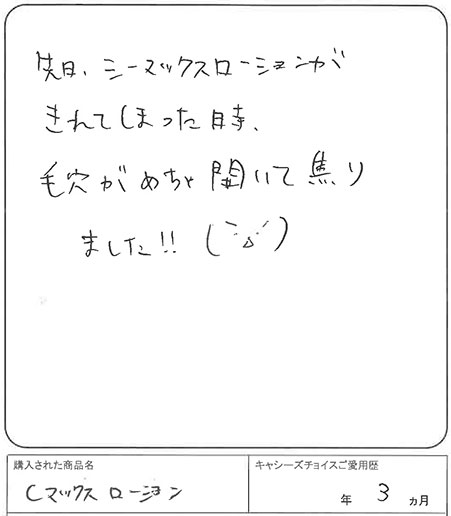 先日、シーマックスローションが
きれてしまった時、
毛穴がめちゃ開いて焦り
ました!! (ﾐ△ﾐ)
購入された商品名
Cマックス ローション
キャシーズチョイスご愛用歴
年 3 ヵ月